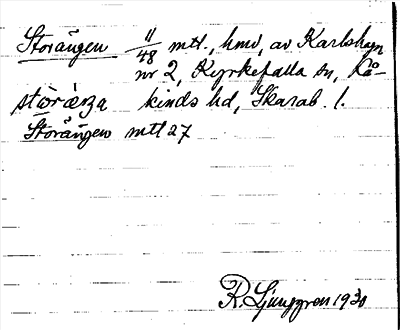 Storängen 11/48 mtl., hmd, av Karlshagen
nr 2, Kyrkefalla sn, Kå-
stòræŋa kinds hd, Skarab. l.
Storängen mtl 27
R. Ljunggren 1930